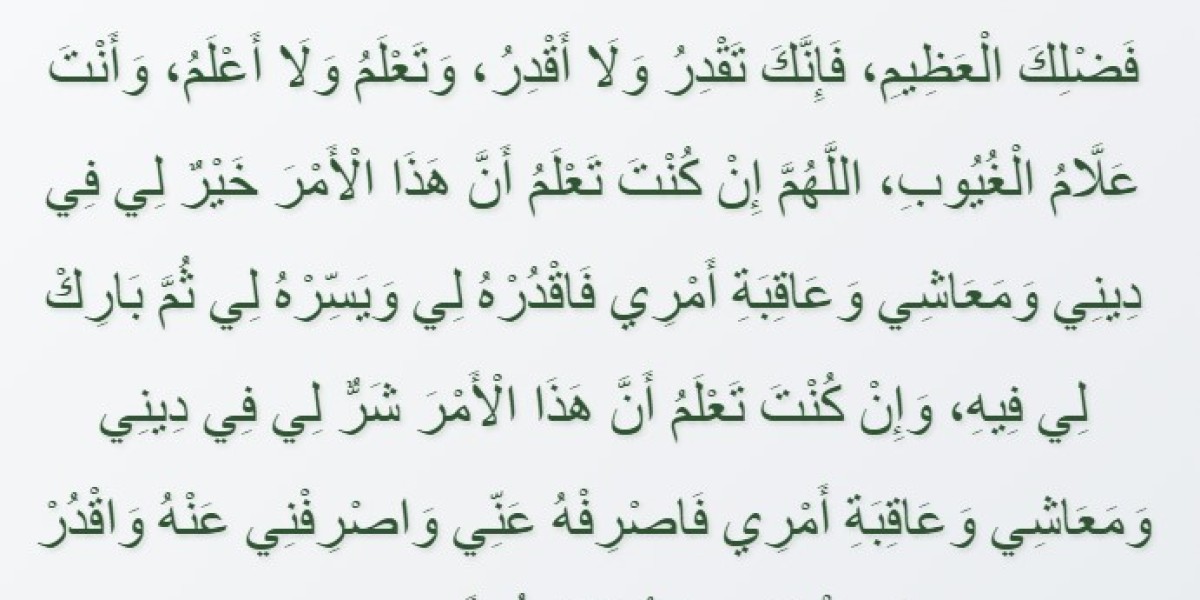 فَضْلِكَ الْعَظِيمِ، فَإِنَّكَ تَقْدِرُ وَلَا أَقْدِرُ، وَتَعْلَمُ وَلَا أَعْلَمُ، وَأَنْتَ
عَلَّامُ الْغُيُوبِ، اللَّهُمَّ إِنْ كُنْتَ تَعْلَمُ أَنَّ هَذَا الْأَمْرَ خَيْرٌ لِي فِي
دِينِي وَمَعَاشِي وَعَاقِبَةِ أَمْرِي فَاقْدُرْهُ لِي وَيَسِّرْهُ لِي ثُمَّ بَارِكْ
لِي فِيهِ، وَإِنْ كُنْتَ تَعْلَمُ أَنَّ هَذَا الْأَمْرَ شَرٌّ لِي فِي دِينِي
وَمَعَاشِي وَعَاقِبَةِ أَمْرِي فَاصْرِفْهُ عَنِّي وَاصْرِفْنِي عَنْهُ وَاقْدُرْ